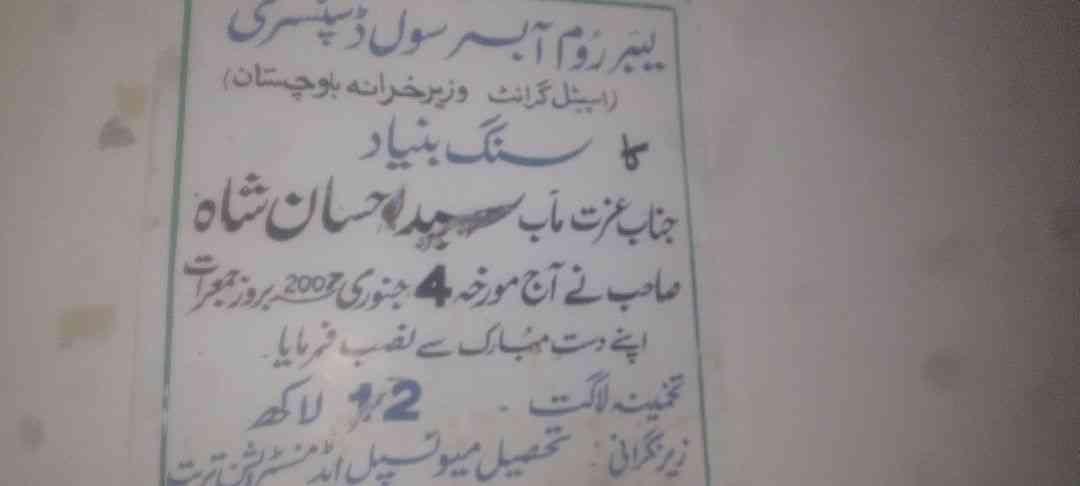 لیبر روم آبسر سول ڈسپنسری
(اسپیشل گرانٹ وزیر خزانہ بلوچستان)
کا سنگ بنیاد
جناب عزت مآب سید احسان شاہ
صاحب نے آج مورخہ 4 جنوری 2007ء بروز جمعرات
اپنے دست مبارک سے نصب فرمایا۔
تخمینہ لاگت - 2 لاکھ
زیر نگرانی : تحصیل میونسپل ایڈمنسٹریشن تربت